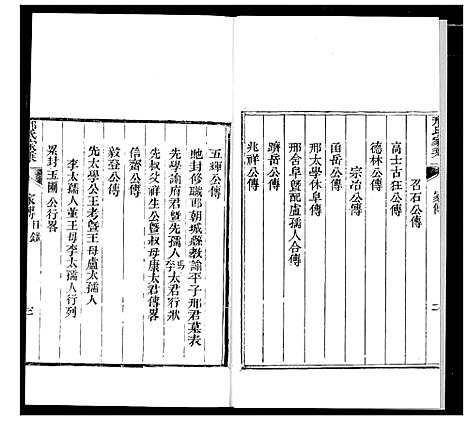 邢氏家乘
家傳
二
召石公傳
高士古狂公傳
德林公傳
宗冶公傳
函岳公傳
邢太學休阜傳
邢舍阜暨配盧孺人合傳
躋岳公傳
兆祥公傳
五輝公傳
馳封修職郎朝城縣教諭平子邢君墓表
先學諭府君暨先孺人李太君行狀
先叔父祥生公暨叔母康太君傳畧
信齋公傳
毅登公傳
先太學公王老暨王母盧太孺人
李太孺人董王母李太孺人行列
累封玉圃公行畧
邢氏家乘
家傳目錄
三